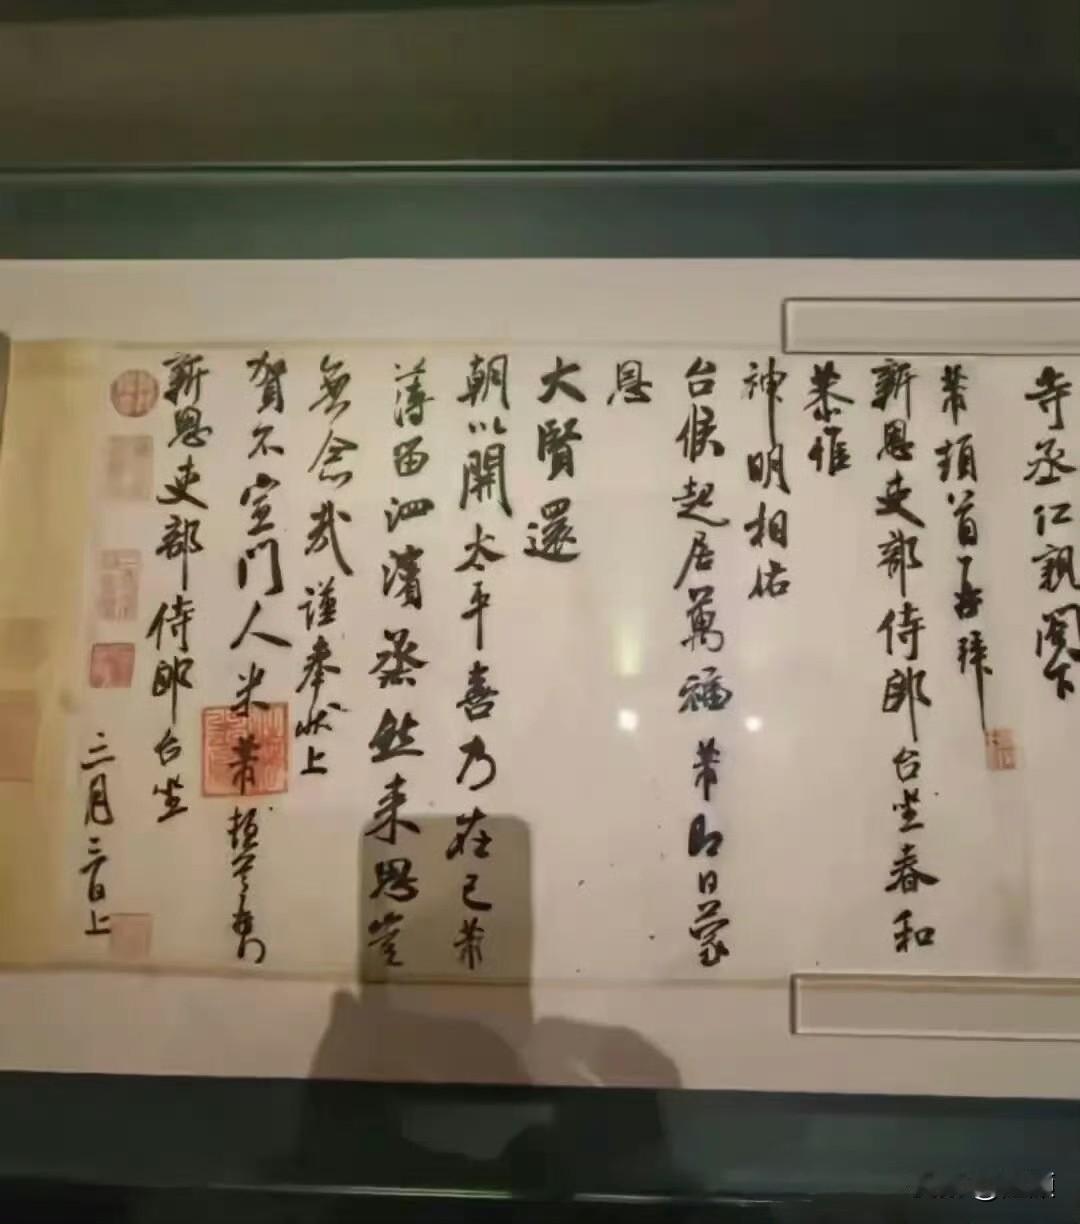 寺丞仁親閣下
芾頓首再拜
新恩吏部侍郎台坐春和
恭惟
神明相佑
台候起居萬福芾即日蒙
恩
大賢還
朝以開太平喜乃在己芾
薄留泗濱蒸然來思豈
無念哉謹奉狀上
賀不宣門人米芾頓首再拜
新恩吏部侍郎台坐
二月三日上